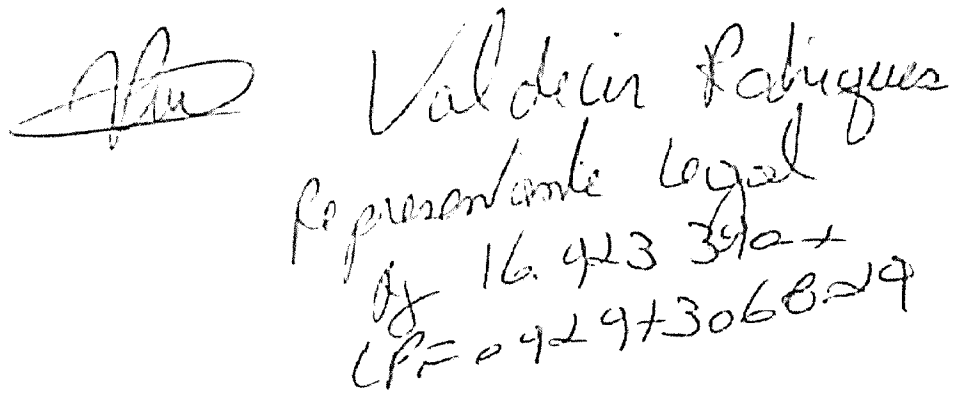 Valdecir Rodrigues
Representante Legal
Rg 16.923 390-x
CPF= 09297306829